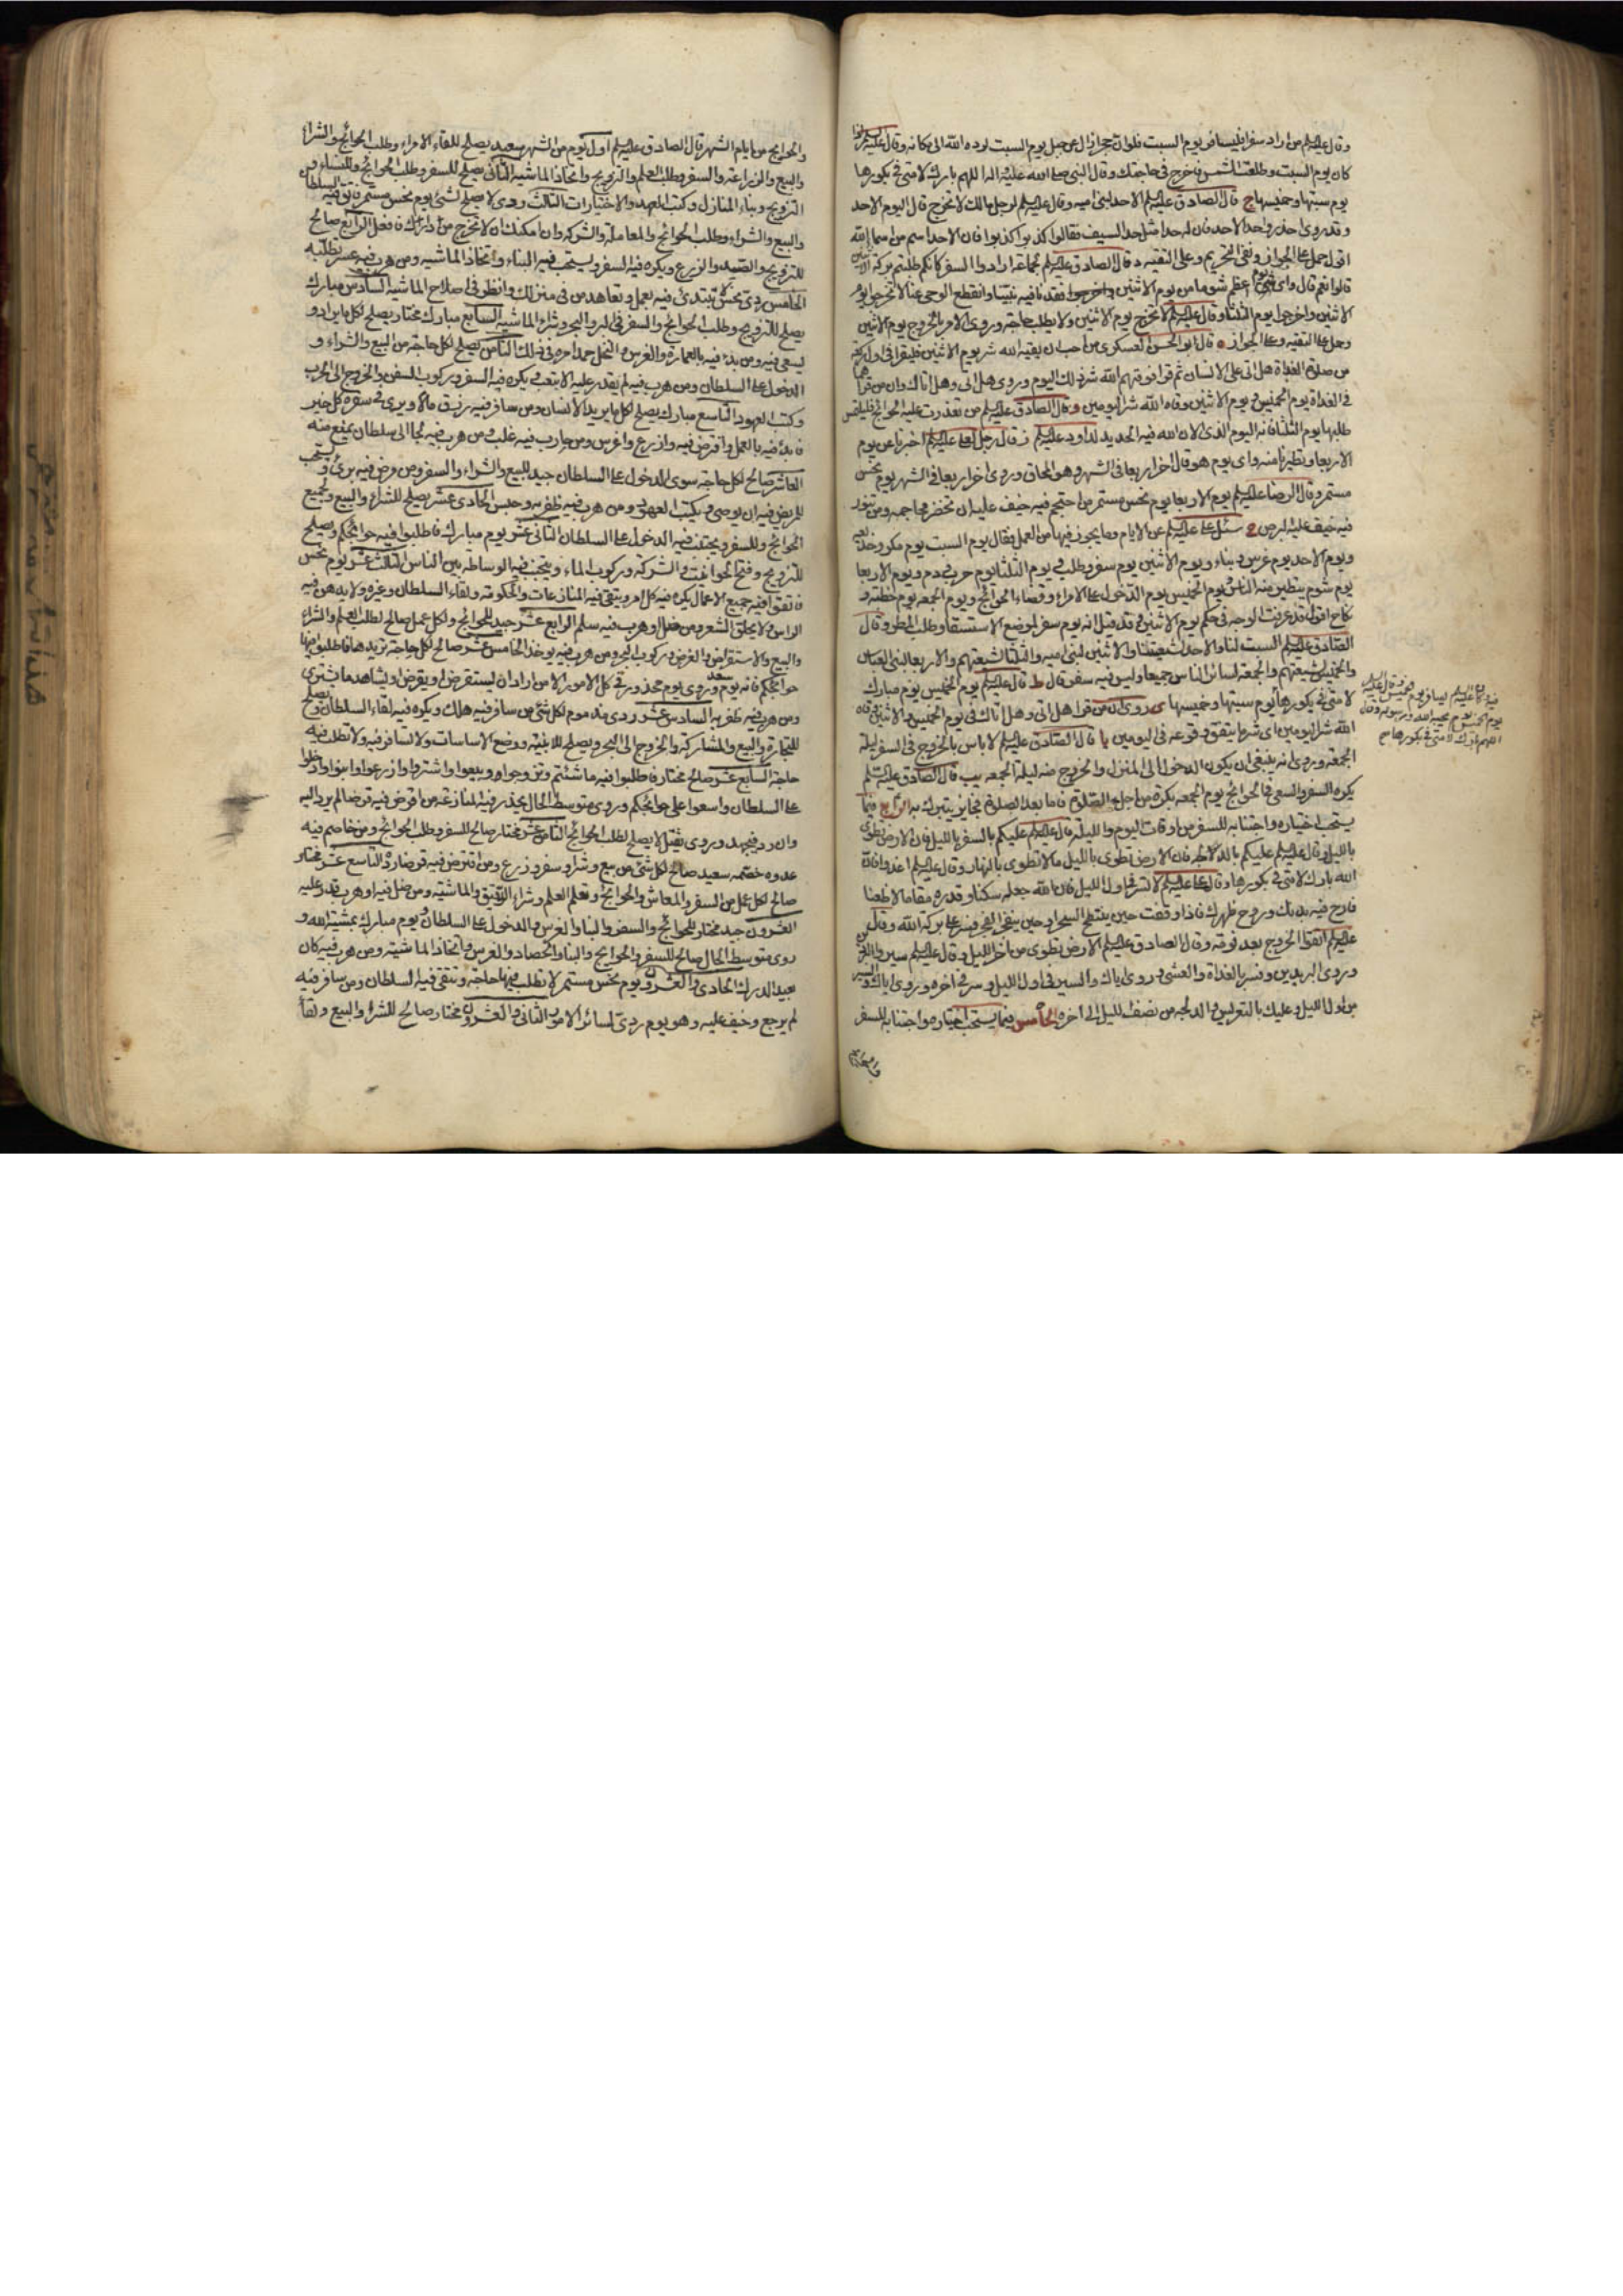 وقال عليه السلم من اراد سفرا فليسافر يوم السبت فلوان حجرا زال عن جبل يوم السبت لرده الله الى مكانه وقال عليه السلم اذا
كان يوم السبت وطلعت الشمس فاخرج في حاجتك وقال النبي صلى الله عليه واله اللهم بارك لامتي في بكورها
يوم سبتها وخميسها ج قال الصادق عليه السلم الاحد لبني اميه وقال عليه السلم لرجل مالك لا تخرج قال اليوم الاحد
وقد روى احذروا حد الاحد فان له حدا مثل حد السيف فقال كذبوا كذبوا فان الاحد اسم من اسماء الله
اقول حمل على الجواز ونفى التحريم وعلى التقيه د قال الصادق عليه السلم لجماعة ارادوا السفر كانكم طلبتم بركة الاثنين
قالوا نعم قال واي يوم اعظم شوما من يوم الاثنين فقدنا فيه نبينا وانقطع الوحي عنا لا تخرجوا يوم
الاثنين واخرجوا يوم الثلثا وقال عليه السلم لا تخرج يوم الاثنين ولا تطلب حاجة وروى الامر بالخروج يوم الاثنين
وحمل على التقيه وعلى الجواز ه قال ابو الحسن العسكرى من احب ان يقيه الله شر يوم الاثنين فليقرا في اول ركعة
من صلوة الغداة هل اتى على الانسان ثم قرا فوقيهم الله شر ذلك اليوم وروى هل اتى وهل اتاك وان من قراهما
في الغداة يوم الخميس ويوم الاثنين وقاه الله شر اليومين و قال الصادق عليه السلم من تعذرت عليه الحوائج فليلتمس
طلبها يوم الثلثا فانه اليوم الذى لان الله فيه الحديد لداود عليه السلم ز قال رجل لعلي عليه السلم اخبرنا عن يوم
الاربعا وتطيرنا منه واى يوم هو قال اخر اربعا في الشهر وهو المحاق وروى اخر اربعا في الشهر يوم نحس
مستمر وقال الرضا عليه السلم يوم الاربعا يوم نحس مستمر من احتجم فيه خيف عليه ان تخضر محاجمه ومن تنور
فيه خيف عليه البرص ح سئل علي عليه السلم عن الايام وما يجوز فيها من العمل فقال يوم السبت يوم مكر وخديعه
ويوم الاحد يوم غرس وبناء ويوم الاثنين يوم سفر وطلب ويوم الثلثا يوم حرب ودم ويوم الاربعا
يوم شوم يتطير منه الناس ويوم الخميس يوم الدخول على الامراء وقضاء الحوائج ويوم الجمعه يوم خطبة و
نكاح اقول قد عرفت الوجه في حكم يوم الاثنين وقد قيل انه يوم سفر لموضع الاستسقا وطلب المطر وقال
الصادق عليه السلم السبت لنا والاحد لشيعتنا والاثنين لبني اميه والثلثا لشيعتهم والاربعا لبنى العباس
والخميس لشيعتهم والجمعة لسائر الناس جميعا وليس فيه سفر قال ط قال عليه السلم يوم الخميس يوم مبارك
لامتى في بكورها يوم سبتها وخميسها ى روى ان من قرا هل اتى وهل اتاك في يوم الخميس والاثنين وقاه
الله شر اليومين اى شر ما يتفق وقوعه في اليومين يا قال الصادق عليه السلم لا باس بالخروج في السفر ليلة
الجمعه وروى انه ينبغي ان يكون الدخول الى المنزل والخروج منه ليلة الجمعه يب قال الصادق عليه السلم
يكره السفر والسعى في الحوائج يوم الجمعه بكرة من اجل الصلوة فاما بعد الصلوة فجايز يتبرك به الرابع فيما
يستحب اختياره واجتنابه للسفر من اوقات اليوم والليلة قال عليه السلم عليكم بالسفر بالليل فان الارض تطوى
بالليل وقال عليه السلم عليكم بالدلجه فان الارض تطوى بالليل مالا تطوى بالنهار وقال عليه السلم
الله بارك لامتى في بكورها وقال علي عليه السلم لا تسر في اول الليل فان الله جعله سكنا وقدره مقاما لا ظعنا
فارح فيه بدنك وروح ظهرك فاذا وقفت حين ينبطح السحر او حين ينفجر الفجر فسر على بركة الله وقال
عليه السلم اتقوا الخروج بعد نومة وقال الصادق عليه السلم الارض تطوى من اخر الليل وقال عليه السلم سيروا البردين
وروى البريدين وفسر بالغداة والعشى وروى اياك والسير في اول الليل وسر في اخره وروى اياك والسير
من اول الليل وعليك بالتعريس والدلجه من نصف الليل الى اخره الخامس فيما يستحب اختياره واجتنابه للسفر
والحوايج من ايام الشهر قال الصادق عليه السلم اول يوم من الشهر سعيد يصلح للقاء الامراء وطلب الحوائج والشراء
والبيع والزراعة والسفر وطلب العلم والتزويج واتخاذ الماشية الثانى يصلح للسفر وطلب الحوائج وللبناء و
التزويج وبناء المنازل وكتب العهد والاختيارات الثالث ردى لا يصلح لشئ يوم نحس مستمر فاتق فيه السلطان
والبيع والشراء وطلب الحوائج والمعاملة والشركه وان امكنك ان لا تخرج من دارك فافعل الرابع صالح
للتزويج والصيد والزرع ويكره فيه السفر ويستحب فيه البناء واتخاذ الماشيه ومن هرب فيه عسر تطلبه
الخامس ردى نحس لا تبتدئ فيه بعمل وتعاهد من في منزلك وانظر في اصلاح الماشيه السادس مبارك
يصلح للتزويج وطلب الحوائج والسفر في البر والبحر وشراء الماشيه السابع مبارك مختار يصلح لكل ما يراد و
يسعى فيه ومن بدء فيه بالعمارة والغرس والنخل حمد امره في ذلك الثامن يصلح لكل حاجة من البيع والشراء و
الدخول على السلطان ومن هرب فيه لم يقدر عليه الا بتعب ويكره فيه السفر وركوب السفن والخروج الى الحرب
وكتب العهود التاسع مبارك يصلح لكل ما يريد الانسان ومن سافر فيه رزق مالا ويرى في سفره كل خير
فابدء فيه بالعمل واقرض فيه وازرع واغرس ومن حارب فيه غلب ومن هرب فيه لجا الى سلطان يمنع منه
العاشر صالح لكل حاجة سوى الدخول على السلطان جيد للبيع والشراء والسفر ومن مرض فيه برئ ويستحب
للمريض فيه ان يوصى ويكتب العهود ومن هرب فيه ظفر به وحبس الحادى عشر يصلح للشراء والبيع ولجميع
الحوائج وللسفر ويجتنب فيه الدخول على السلطان الثانى عشر يوم مبارك فاطلبوا فيه حوائجكم ويصلح
للتزويج وفتح الحوانيت والشركة وركوب الماء ويجتنب فيه الوساطه بين الناس الثالث عشر يوم نحس
فاتقوا فيه جميع الاعمال يكره فيه كل امر ويتقى فيه المنازعات والحكومة ولقاء السلطان وغيره ولا يدهن فيه
الراس ولا يحلق الشعر ومن ضل او هرب فيه سلم الرابع عشر جيد للحوائج ولكل عمل صالح لطلب العلم والشراء
والبيع والاستقراض والقرض وركوب البحر ومن هرب فيه يوخذ الخامس عشر صالح لكل حاجة تريدها فاطلبوا فيه
حوائجكم فانه يوم سعد وروى يوم محذور في كل الامور الا من اراد ان يستقرض او يقرض او يشاهد ما يشترى
ومن هرب فيه ظفر به السادس عشر ردى مذموم لكل شئ من سافر فيه هلك ويكره فيه لقاء السلطان ويصلح
للتجارة والبيع والمشاركة والخروج الى البحر ويصلح للابنية ووضع الاساسات ولا تسافر فيه ولا تطلب فيه
حاجة السابع عشر صالح مختار فاطلبوا فيه ما شئتم وتزوجوا وبيعوا واشتروا وازرعوا وابنوا وادخلوا
على السلطان واسعوا على حوائجكم وروى متوسط الحال يحذر فيه المنازعة من اقرض فيه قرضا لم يرد اليه
وان رد فبجهد وروى ثقيل لا يصلح لطلب الحوائج الثامن عشر مختار صالح للسفر وطلب الحوائج ومن خاصم فيه
عدوه خصمه سعيد صالح لكل شئ من بيع وشراء وسفر وزرع ومن اقترض فيه قرضا رده التاسع عشر مختار
صالح لكل عمل من السفر والمعاش والحوائج وتعلم العلم وشراء الرقيق والماشية ومن ضل فيه او هرب قدر عليه
العشرون جيد مختار للحوائج والسفر والبناء والغرس والدخول على السلطان ويوم مبارك بمشية الله و
روى متوسط الحال صالح للسفر والحوايج والبناء والحصاد والغرس واتخاذ الماشية ومن هرب فيه كان
بعيد الدرك الحادى والعشرون يوم نحس مستمر لا تطلب فيها حاجة وتتقى فيه السلطان ومن سافر فيه
لم يرجع وخيف عليه وهو يوم ردى لسائر الامور الثانى والعشرون مختار صالح للشراء والبيع ولقاء